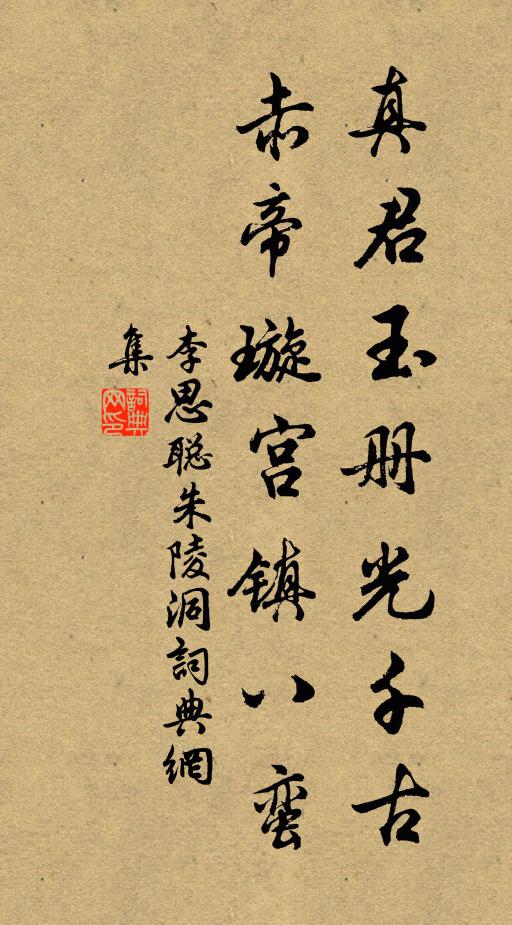 真君玉册光千古
赤帝璇宫镇八蛮
李思聪朱陵洞詞典網
集
詞典網印